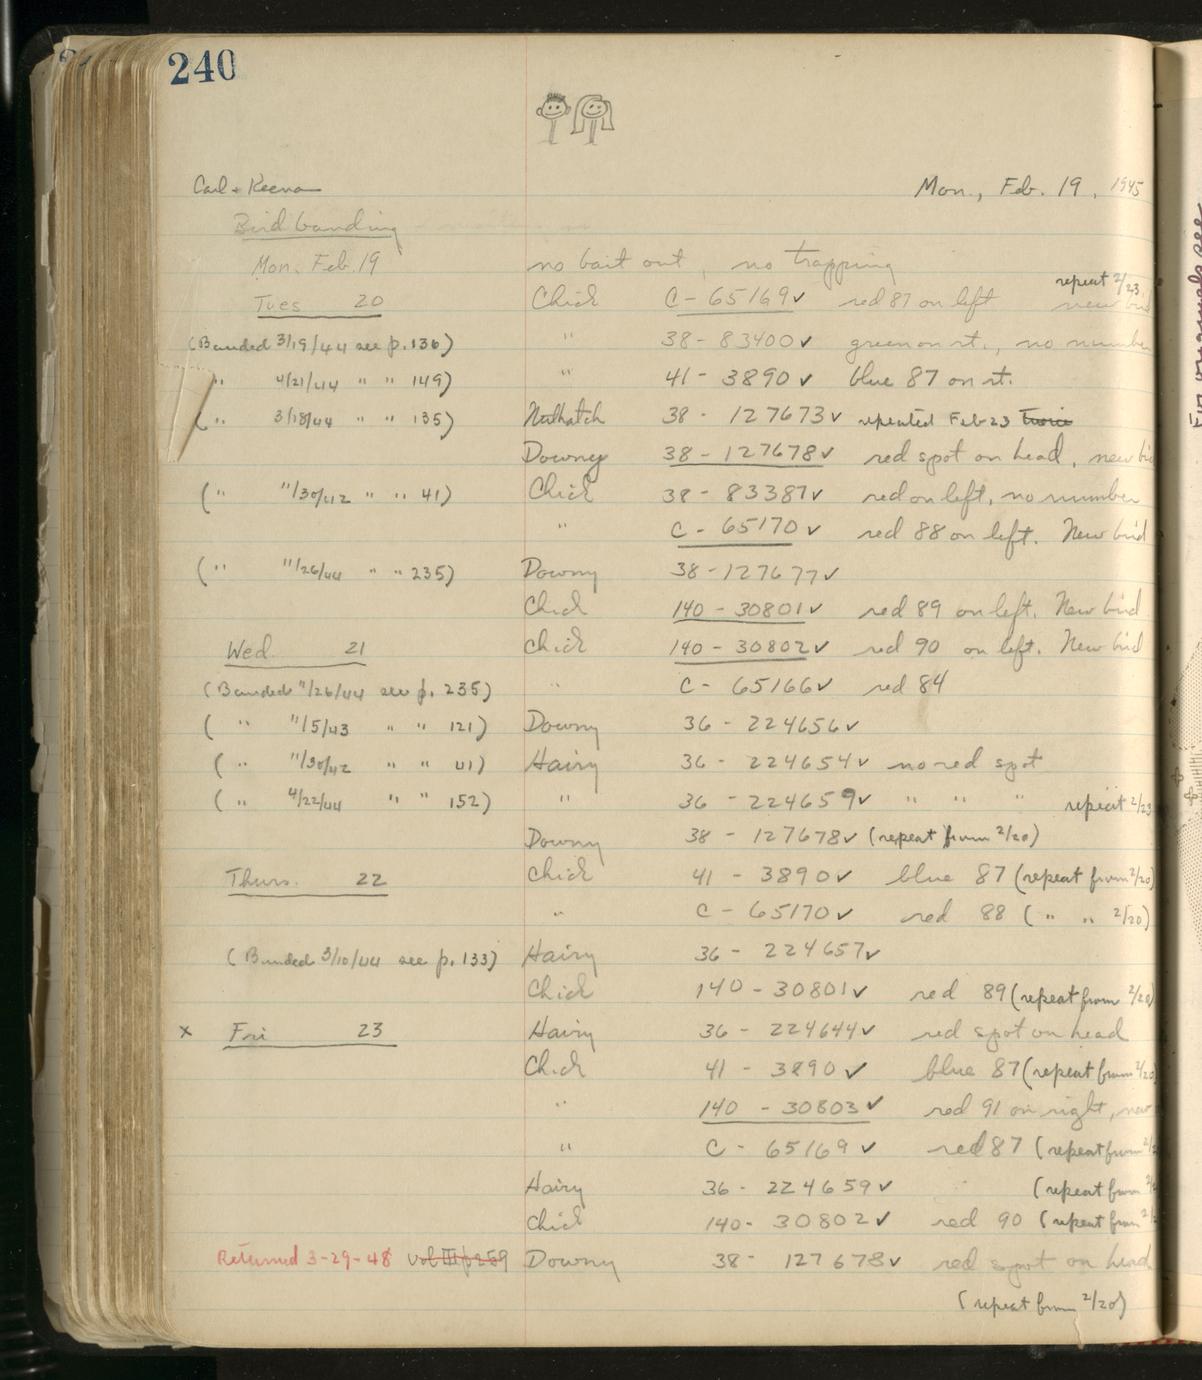 240
Carl + Keena Mon., Feb. 19, 1945
Bird banding
Mon. Feb. 19 no bait out, no trapping
repeat 2/23
Tues 20 Chick C - 65169✓ red 87 on left new bird
(Banded 3/19/44 see p. 136) " 38 - 83400✓ green on rt., no number
( " 4/21/44 " " 149) " 41 - 3890✓ blue 87 on rt.
( " 3/18/44 " " 135) Nuthatch 38 - 127673✓ repeated Feb 23 twice
Downy 38 - 127678✓ red spot on head, new bird
( " 11/30/42 " " 41) Chick 38 - 83387✓ red on left, no number
" C - 65170✓ red 88 on left. New bird
( " 11/26/44 " " 235) Downy 38 - 127677✓
Chick 140 - 30801✓ red 89 on left. New bird
Wed. 21 Chick 140 - 30802✓ red 90 on left. New bird
(Banded 11/26/44 see p. 235) " C - 65166✓ red 84
( " 11/5/43 " " 121) Downy 36 - 224656✓
( " 11/30/42 " " 41) Hairy 36 - 224654✓ no red spot
( " 4/22/44 " " 152) " 36 - 224659✓ " " " repeat 2/23
Downy 38 - 127678✓ (repeat from 2/20)
Thurs. 22 Chick 41 - 3890✓ blue 87 (repeat from 2/20)
" C - 65170✓ red 88 ( " " 2/20)
(Banded 3/10/44 see p. 133) Hairy 36 - 224657✓
Chick 140 - 30801✓ red 89 (repeat from 2/20)
x Fri 23 Hairy 36 - 224644✓ red spot on head
Chick 41 - 3890✓ blue 87 (repeat from 2/20
" 140 - 30803✓ red 91 on right, new
" C - 65169✓ red 87 (repeat from 2/
Hairy 36 - 224659✓ (repeat from 2/
Chick 140 - 30802✓ red 90 (repeat from 2/
Returned 3-29-48 vol III p 259 Downy 38 - 127678✓ red spot on head
(repeat from 2/20)